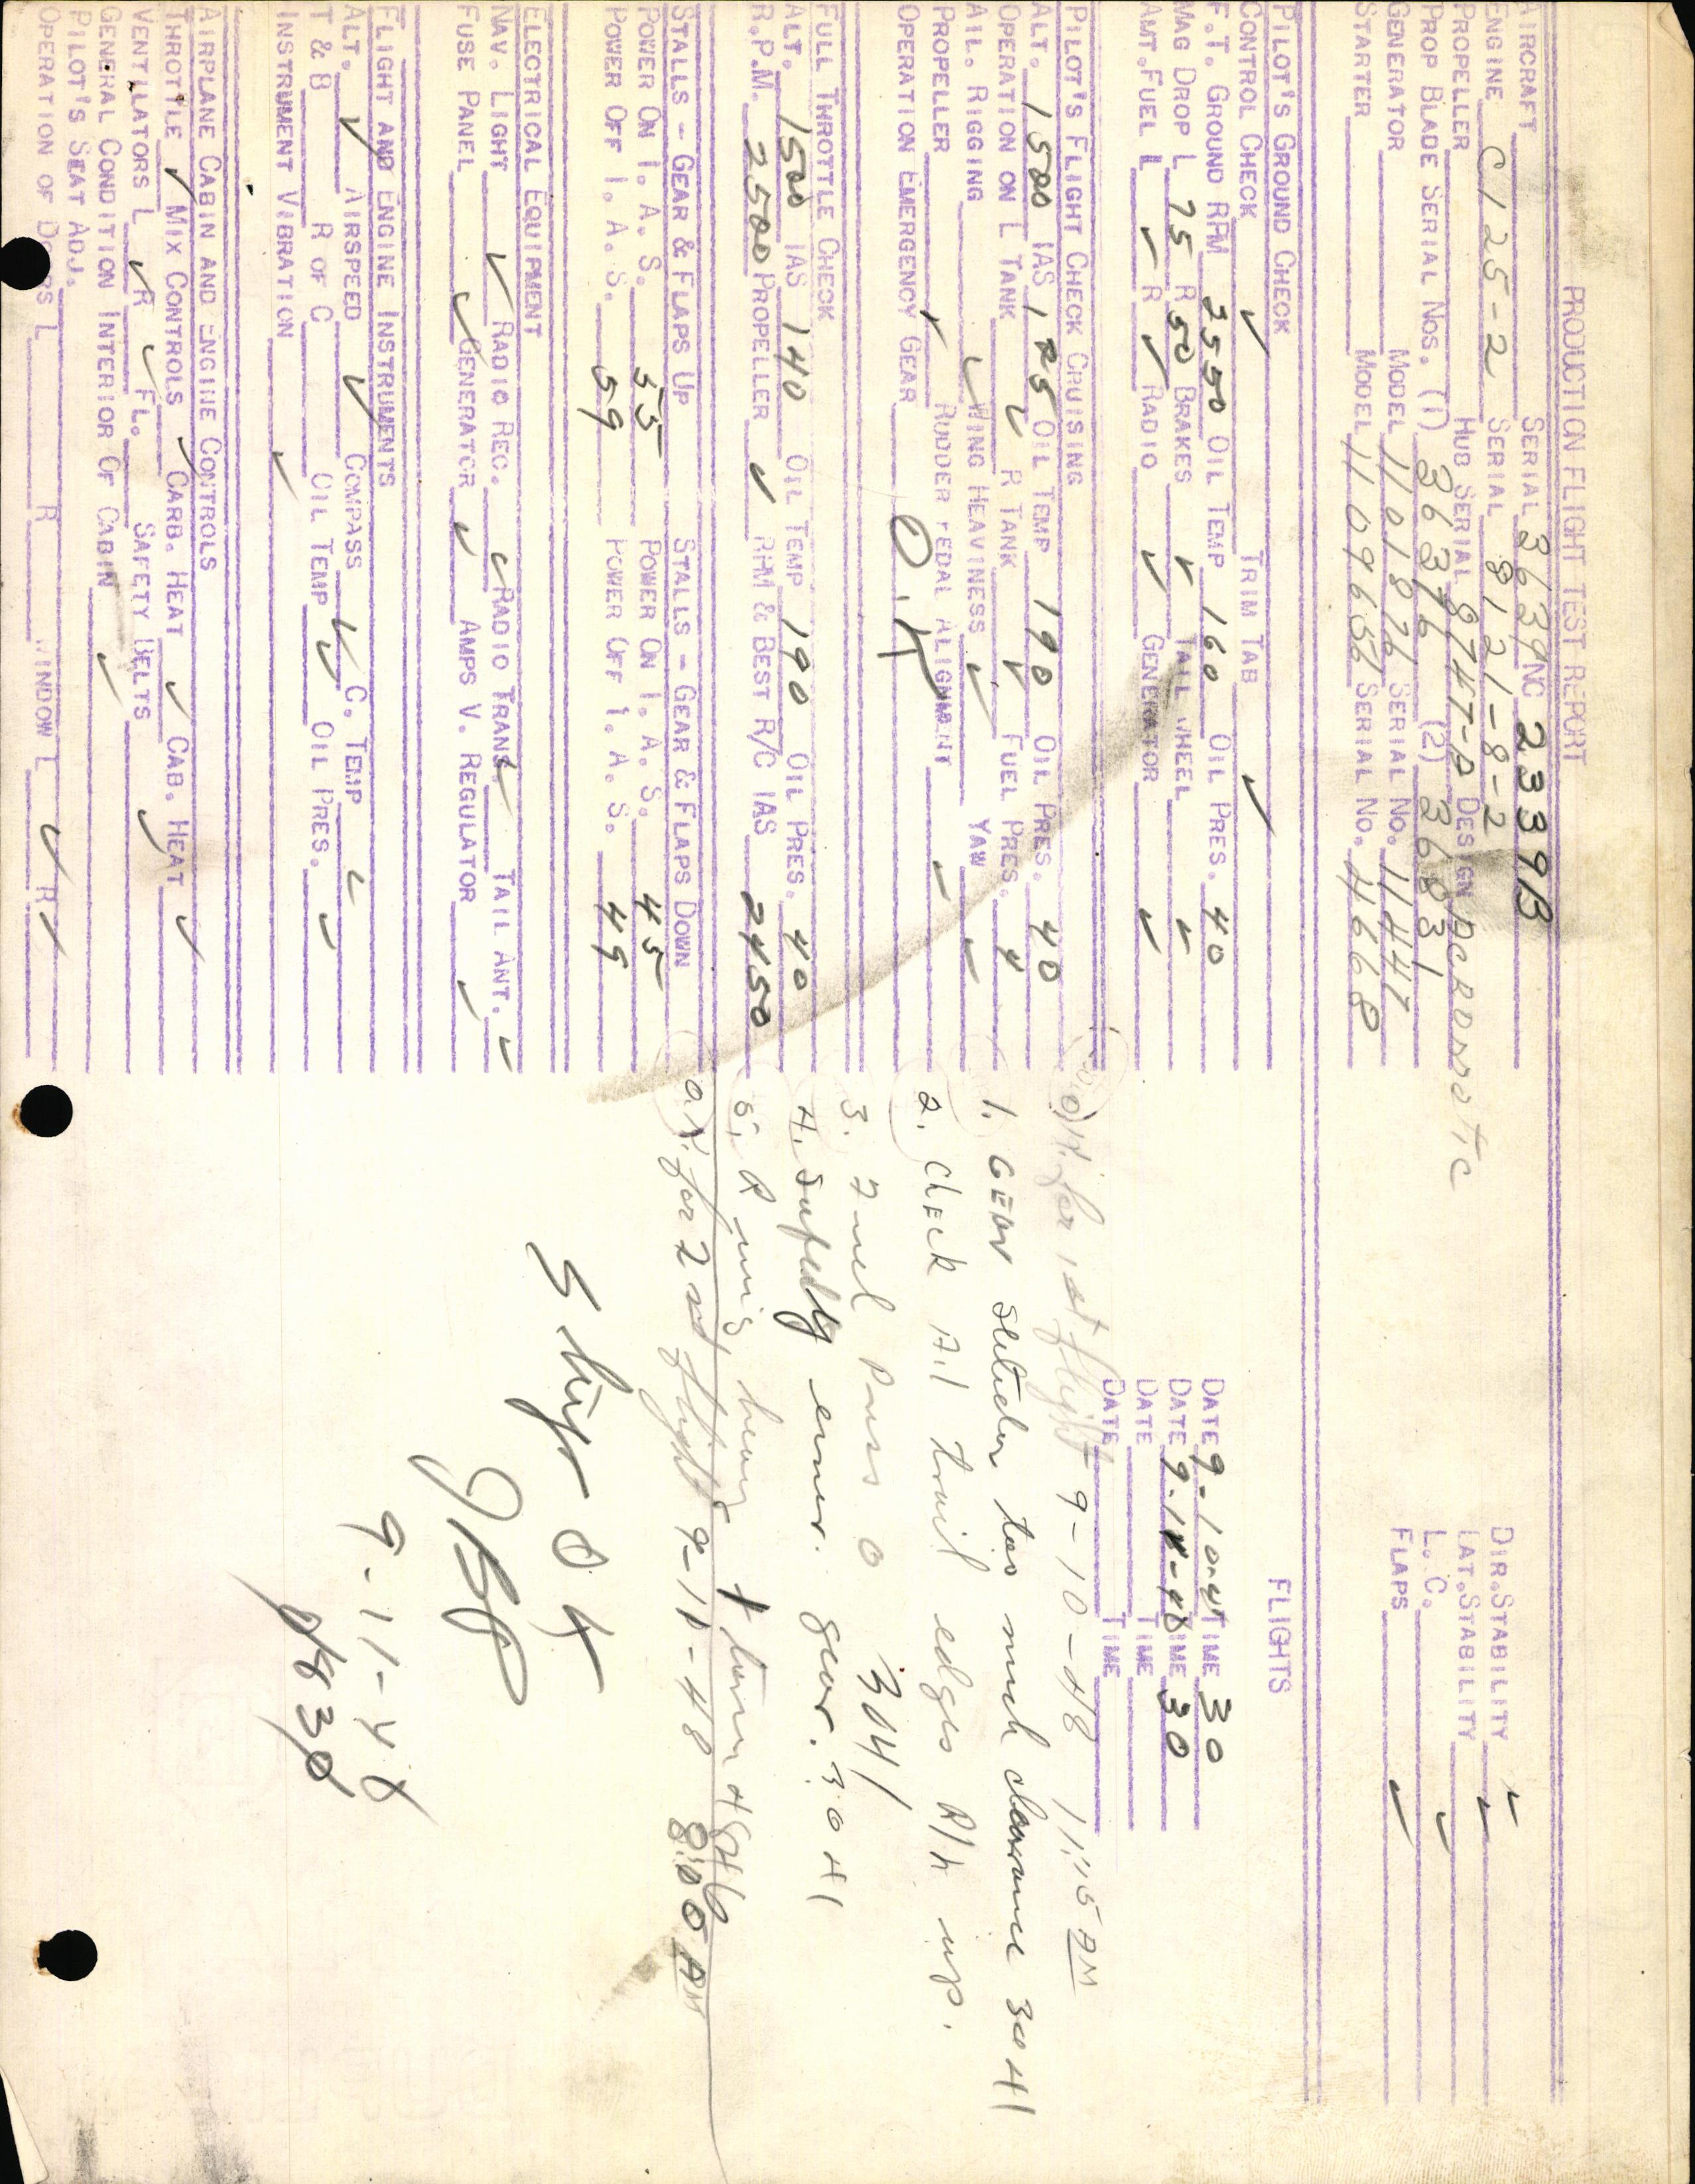 PRODUCTION FLIGHT TEST REPORT
AIRCRAFT SERIAL 3639 NC 2339B
ENGINE C125-2 SERIAL 8121-8-2 DIR. STABILITY ✓
PROPELLER HUB SERIAL DESIGN Aeromatic LAT. STABILITY ✓
PROP BLADE SERIAL NOS. (1) (2) 36831 L. C. ✓
GENERATOR MODEL 1101876 SERIAL NO. FLAPS ✓
STARTER MODEL 1109656 SERIAL NO. 4668
PILOT'S GROUND CHECK FLIGHTS
CONTROL CHECK ✓ TRIM TAB ✓
F.T. GROUND RPM OIL TEMP 160 OIL PRES. 40 DATE 9-10-48 TIME 30
MAG DROP L 75 R 50 BRAKES ✓ TAIL WHEEL ✓ DATE TIME 30
AMT. FUEL L ✓ R ✓ RADIO ✓ GENERATOR ✓ DATE TIME
DATE TIME
PILOT'S FLIGHT CHECK CRUISING O.K. for 1st flight 9-10-48 11:15 AM
ALT. 1500 IAS 125 OIL TEMP 190 OIL PRES. 40
OPERATION ON L TANK ✓ R TANK ✓ FUEL PRES. 4 1. GEAR selector too much clearance 3041
AIL. RIGGING ✓ WING HEAVINESS ✓ YAW ✓
PROPELLER ✓ RUDDER PEDAL ALIGNMENT ✓ 2. Check Ail trail edges R/h up.
OPERATION EMERGENCY GEAR O.K
3. Fuel Press 0 3041
FULL THROTTLE CHECK
ALT. 1500 IAS 140 OIL TEMP 190 OIL PRES. 40 4. Safety emer. gear. 3041
R.P.M. 2500 PROPELLER ✓ RPM & BEST R/C IAS 2450 5. R wing heavy
STALLS - GEAR & FLAPS UP STALLS - GEAR & FLAPS DOWN O.K. for 2nd flight 9-11-48 8:00 AM
POWER ON I. A. S. 55 POWER ON I. A. S. 45
POWER OFF I. A. S. 59 POWER OFF I. A. S. 49
Ship O K
ELECTRICAL EQUIPMENT
NAV. LIGHT ✓ RADIO REC. ✓ RADIO TRANS ✓ TAIL ANT. ✓
FUSE PANEL ✓ GENERATOR ✓ AMPS V. REGULATOR ✓
FLIGHT AND ENGINE INSTRUMENTS
ALT. ✓ AIRSPEED ✓ COMPASS ✓ C. TEMP ✓ 9-11-48
T & B R OF C OIL TEMP ✓ OIL PRES. ✓
INSTRUMENT VIBRATION ✓ 0830
AIRPLANE CABIN AND ENGINE CONTROLS
THROTTLE ✓ MIX CONTROLS ✓ CARB. HEAT ✓ CAB. HEAT ✓
VENTILATORS L ✓ R ✓ FL. SAFETY BELTS ✓
GENERAL CONDITION INTERIOR OF CABIN ✓
PILOT'S SEAT ADJ.
OPERATION OF DOORS L R WINDOW L ✓ R ✓